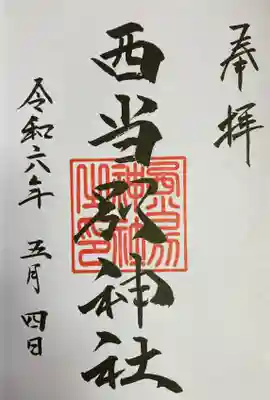 奉拝
西当別神社
令和六年 五月 四日